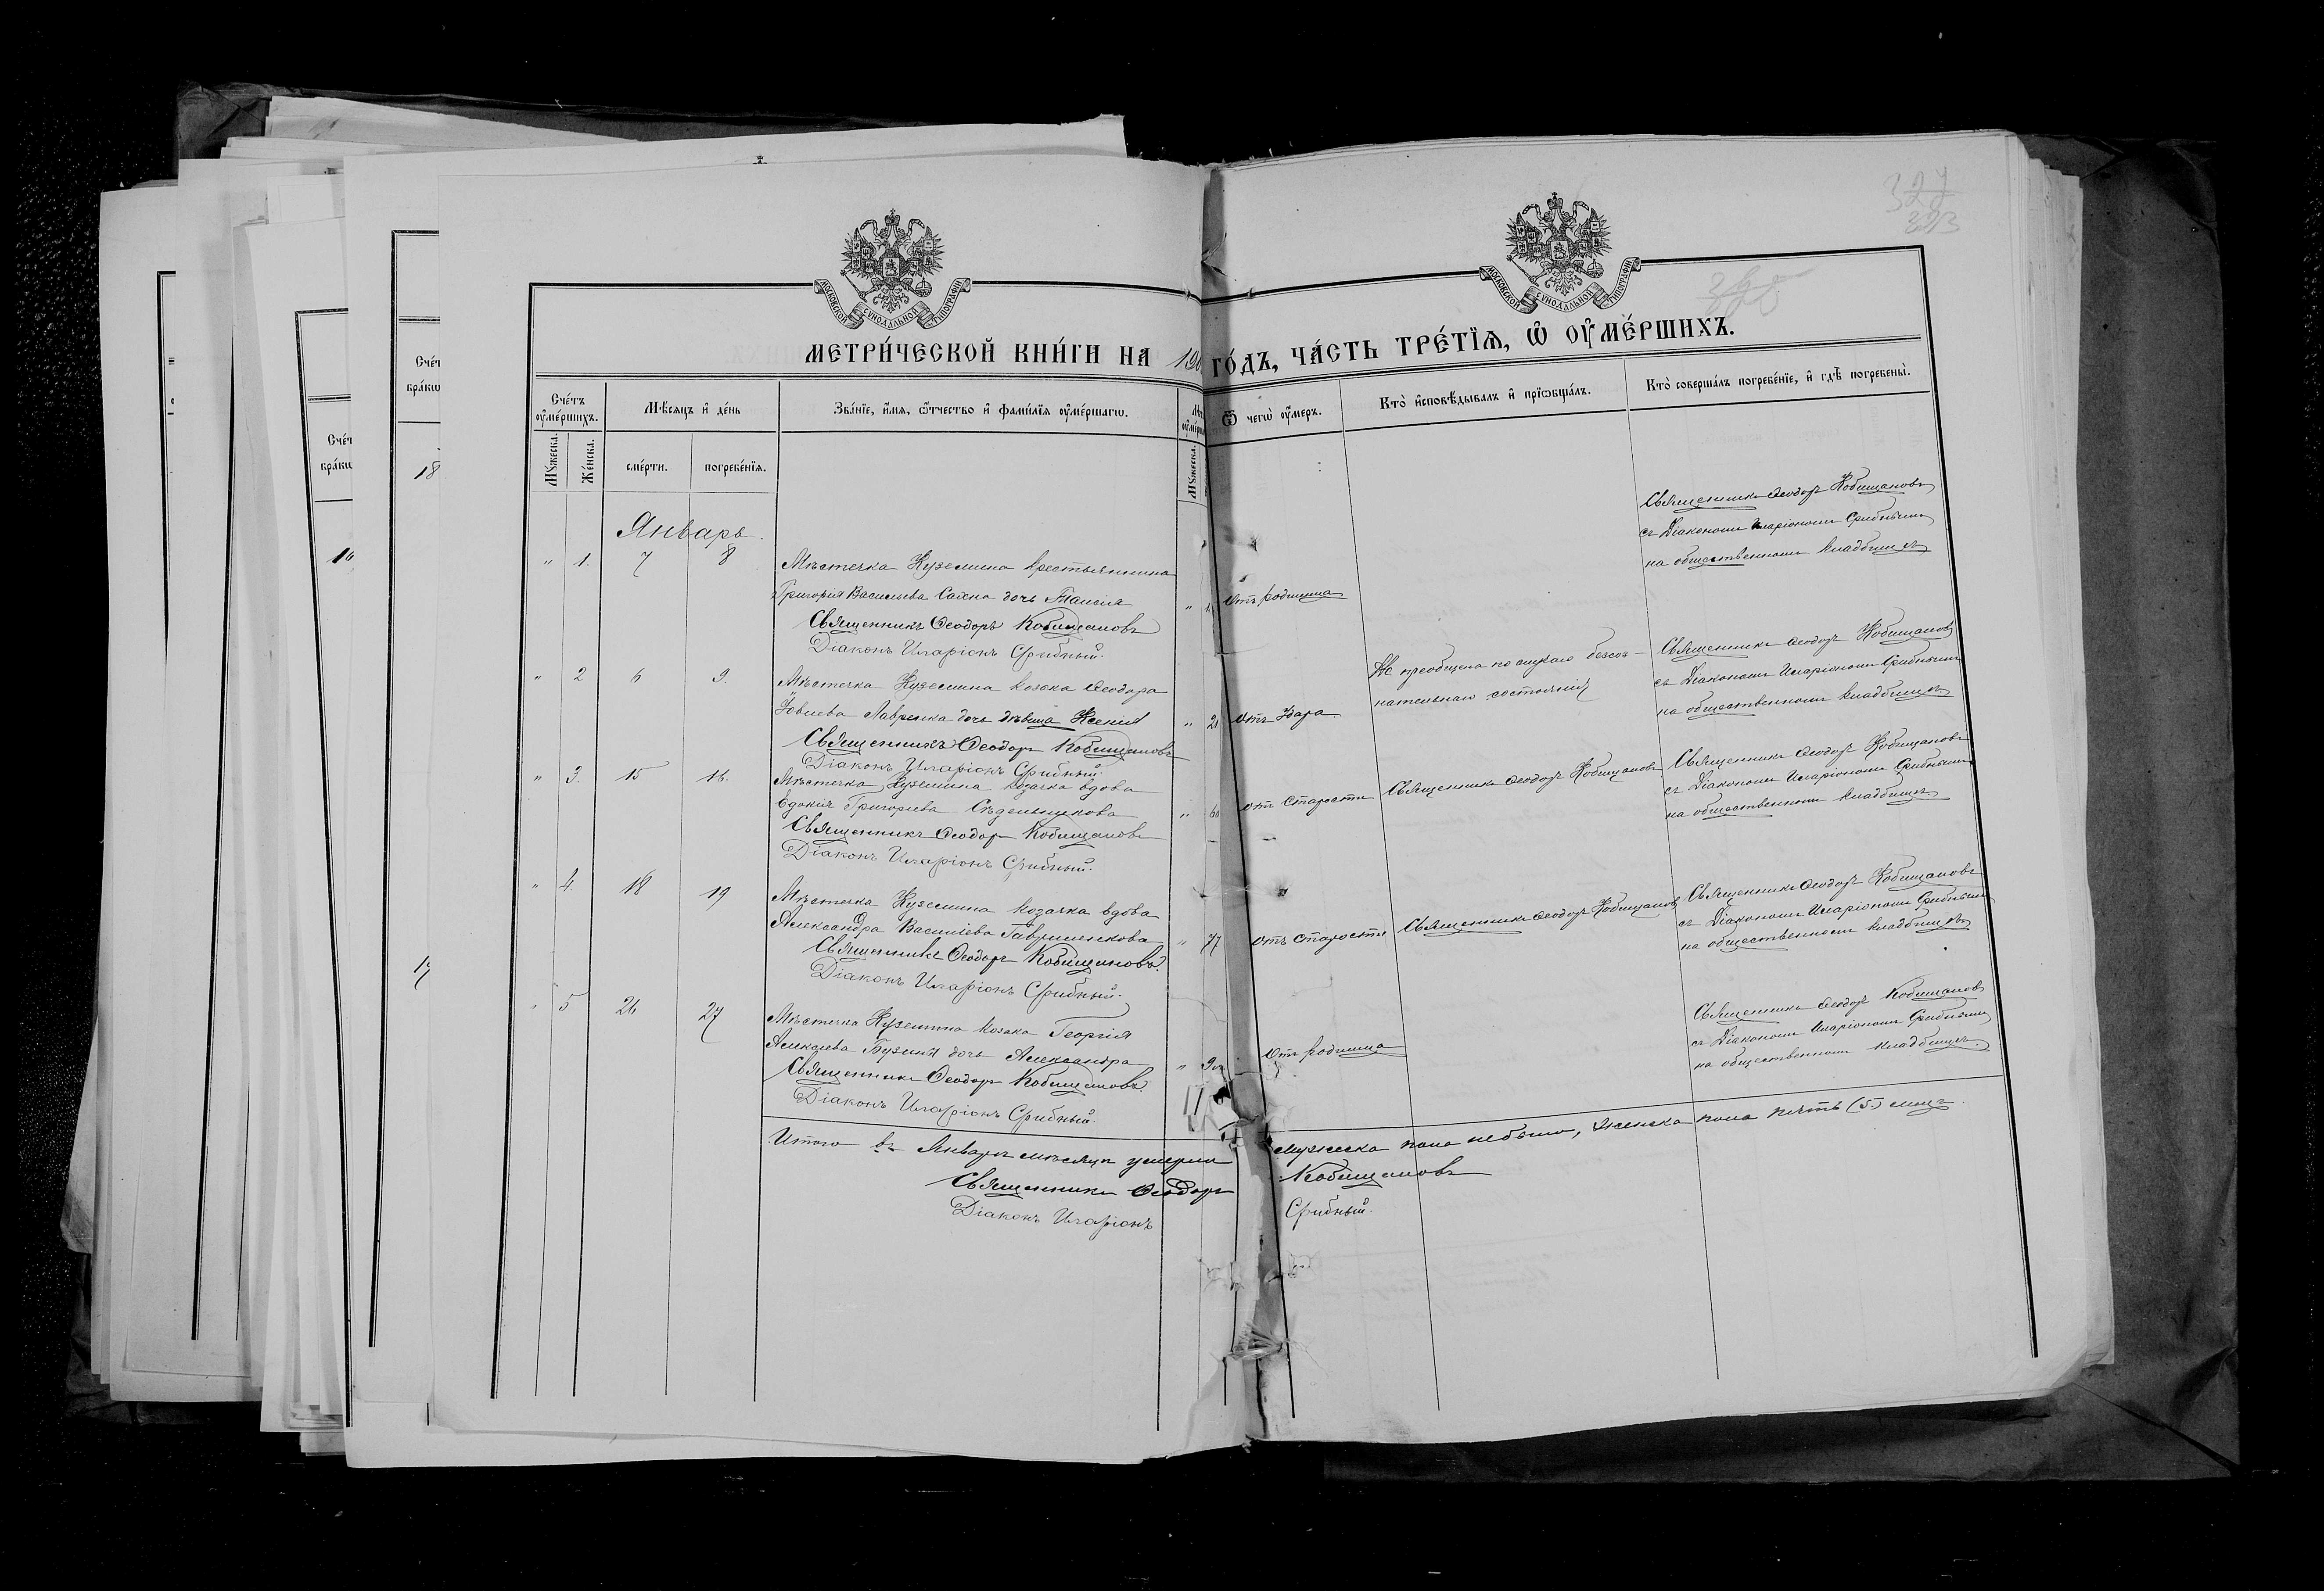 МОСКОВСКОЙ СУНОДАЛЬНОЙ ТИПОГРАФІИ
МОСКОВСКОЙ СУНОДАЛЬНОЙ ТИПОГРАФІИ
327
МЕТРИ́ЧЕСКОЙ КНИ́ГИ НА 190 ГО́ДЪ, ЧА́СТЬ ТРЕ́ТЇѦ, Ѿ ОУ҆МЕ́РШИХЪ.
Сче́тъ оу҆ме́ршихъ.
Мѣ́сяцъ и҆ де́нь
Зва́нїе, и҆́мя, ѻ҆́тчество и҆ фами́лїя оу҆ме́ршагѡ.
Ѿ чегѡ̀ оу҆́меръ.
Кто̀ и҆сповѣ́дывалъ и҆ прїѡбща́лъ.
Кто̀ соверша́лъ погребе́нїе, и҆ гдѣ̀ погребены̀.
Мꙋ́жеска.
Же́нска.
сме́рти.
погребе́нїя.
Мꙋ́жеска.
Январь.
" 1. 7 8
Мѣстечка Куземина крестьянина
Григорія Васильева Сахна дочь Таисія
Священникъ Ѳеодоръ Кобищановъ
Діаконъ Иларіонъ Срибный.
" 1
Отъ родимца
Священникъ Ѳеодоръ Кобищановъ
съ Діакономъ Иларіономъ Срибнымъ
на общественномъ кладбищѣ
" 2 6 9.
Мѣстечка Куземина козака Ѳеодора
Іовлева Лавренка дочь дѣвица Ксенія
Священникъ Ѳеодоръ Кобищановъ
Діаконъ Иларіонъ Срибный.
" 21
Не преобщена по случаю безсоз-
нательнаго состоянія
Священникъ Ѳеодоръ Кобищановъ
съ Діакономъ Иларіономъ Срибнымъ
на общественномъ кладбищѣ
" 3. 15 16.
Мѣстечка Куземина козачка вдова
Евдокія Григорьева
Священникъ Ѳеодоръ Кобищановъ
Діаконъ Иларіонъ Срибный.
" 60
Отъ старости
Священникъ Ѳеодоръ Кобищановъ
Священникъ Ѳеодоръ Кобищановъ
съ Діакономъ Иларіономъ Срибнымъ
на общественномъ кладбищѣ
" 4. 18 19
Мѣстечка Куземина козачка вдова
Александра Василіева Гавришенкова
Священникъ Ѳеодоръ Кобищановъ.
Діаконъ Иларіонъ Срибный.
" 77
Отъ старости
Священникъ Ѳеодоръ Кобищановъ
Священникъ Ѳеодоръ Кобищановъ
съ Діакономъ Иларіономъ Срибнымъ
на общественномъ кладбищѣ
" 5 26 27
Мѣстечка Куземина козака Георгія
Алексѣева дочь Александра
Священникъ Ѳеодоръ Кобищановъ.
Діаконъ Иларіонъ Срибный.
" 9
Отъ родимца
Священникъ Ѳеодоръ Кобищановъ
съ Діакономъ Иларіономъ Срибнымъ
на общественномъ кладбищѣ.
Итого въ Январѣ мѣсяцѣ умерло мужеска пола небыло, женска пола пять (5) лицъ.
Священникъ Ѳеодоръ Кобищановъ
Діаконъ Иларіонъ Срибный.
Сче́т
бра́кѡ
18
17
Сче́т
бра́кѡ